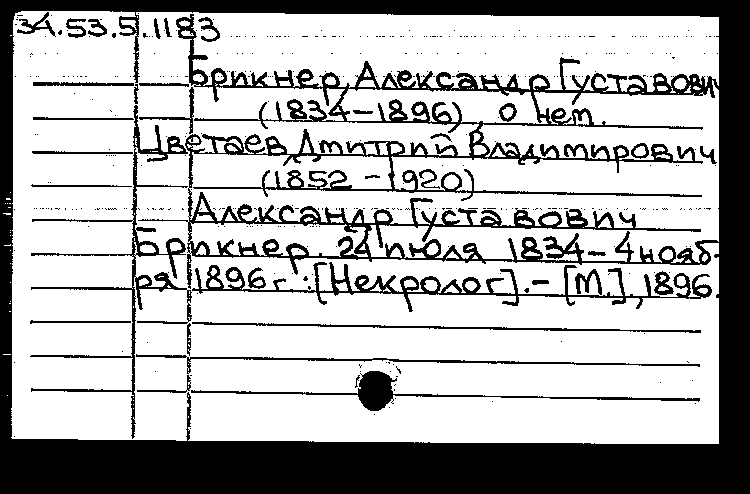 34.53.5.1183
Брикнер, Александр Густавович
(1834-1896), о нем.
Цветаев, Дмитрий Владимирович
(1852-1920)
Александр Густавович
Брикнер. 24 июля 1834 - 4 нояб-
ря 1896 г.: [Некролог]. - [М.], 1896.